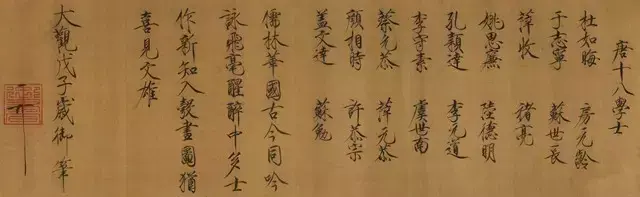 唐十八學士
杜如晦 房元齡
于志寧 蘇世長
薛收 褚亮
姚思廉 陸德明
孔穎達 李元道
李守素 虞世南
蔡元恭 薛元恭
顏相時 許恭宗
蓋文達 蘇勉
儒林華國古今同吟
詠飛毫醒醉中多士
作新知入彀畫圖猶
喜見文雄
大觀戊子歲御筆